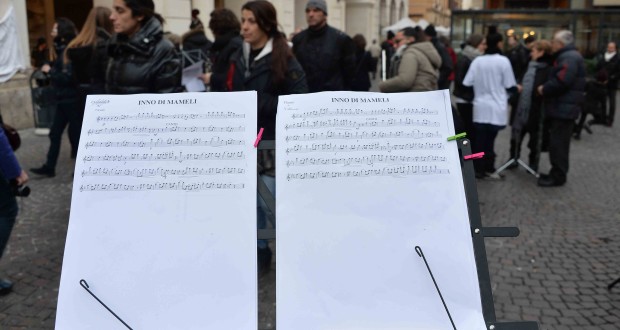 INNO DI MAMELI
INNO DI MAMELI